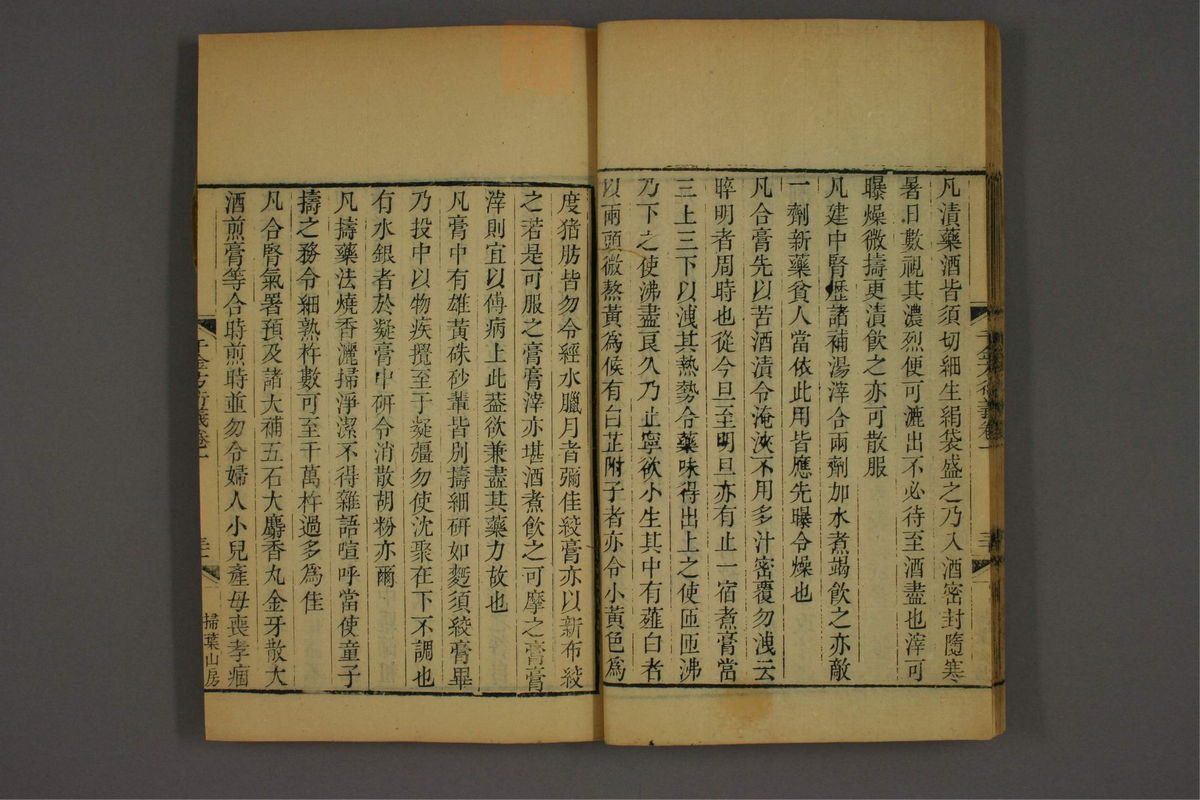 凡漬藥酒皆須切細生絹袋盛之乃入酒密封隨寒
暑日數視其濃烈便可漉出不必待至酒盡也滓可
曝燥微擣更漬飲之亦可散服
凡建中腎瀝諸補湯滓合兩劑加水煮竭飲之亦敵
一劑新藥貧人當依此用皆應先曝令燥也
凡合膏先以苦酒漬令淹浹不用多汁密覆勿洩云
晬明者周時也從今旦至明旦亦有止一宿煮膏當
三上三下以洩其熱勢令藥味得出上之使匝匝沸
乃下之使沸盡良久乃止寧欲小生其中有薤白者
以兩頭微熬黃爲候有白芷附子者亦令小黃色爲
度猪肪皆勿令經水臘月者彌佳絞膏亦以新布絞
之若是可服之膏膏滓亦堪酒煮飲之可摩之膏膏
滓則宜以傅病上此蓋欲兼盡其藥力故也
凡膏中有雄黃硃砂輩皆別擣細研如麪須絞膏畢
乃投中以物疾攪至于凝彊勿使沈聚在下不調也
有水銀者於凝膏中研令消散胡粉亦爾
凡擣藥法燒香灑掃淨潔不得雜語喧呼當使童子
擣之務令細熟杵數可至千萬杵過多爲佳
凡合腎氣署預及諸大補五石大麝香丸金牙散大
酒煎膏等合時煎時並勿令婦人小兒產母喪孝痼
千金方衍義卷一
掃葉山房